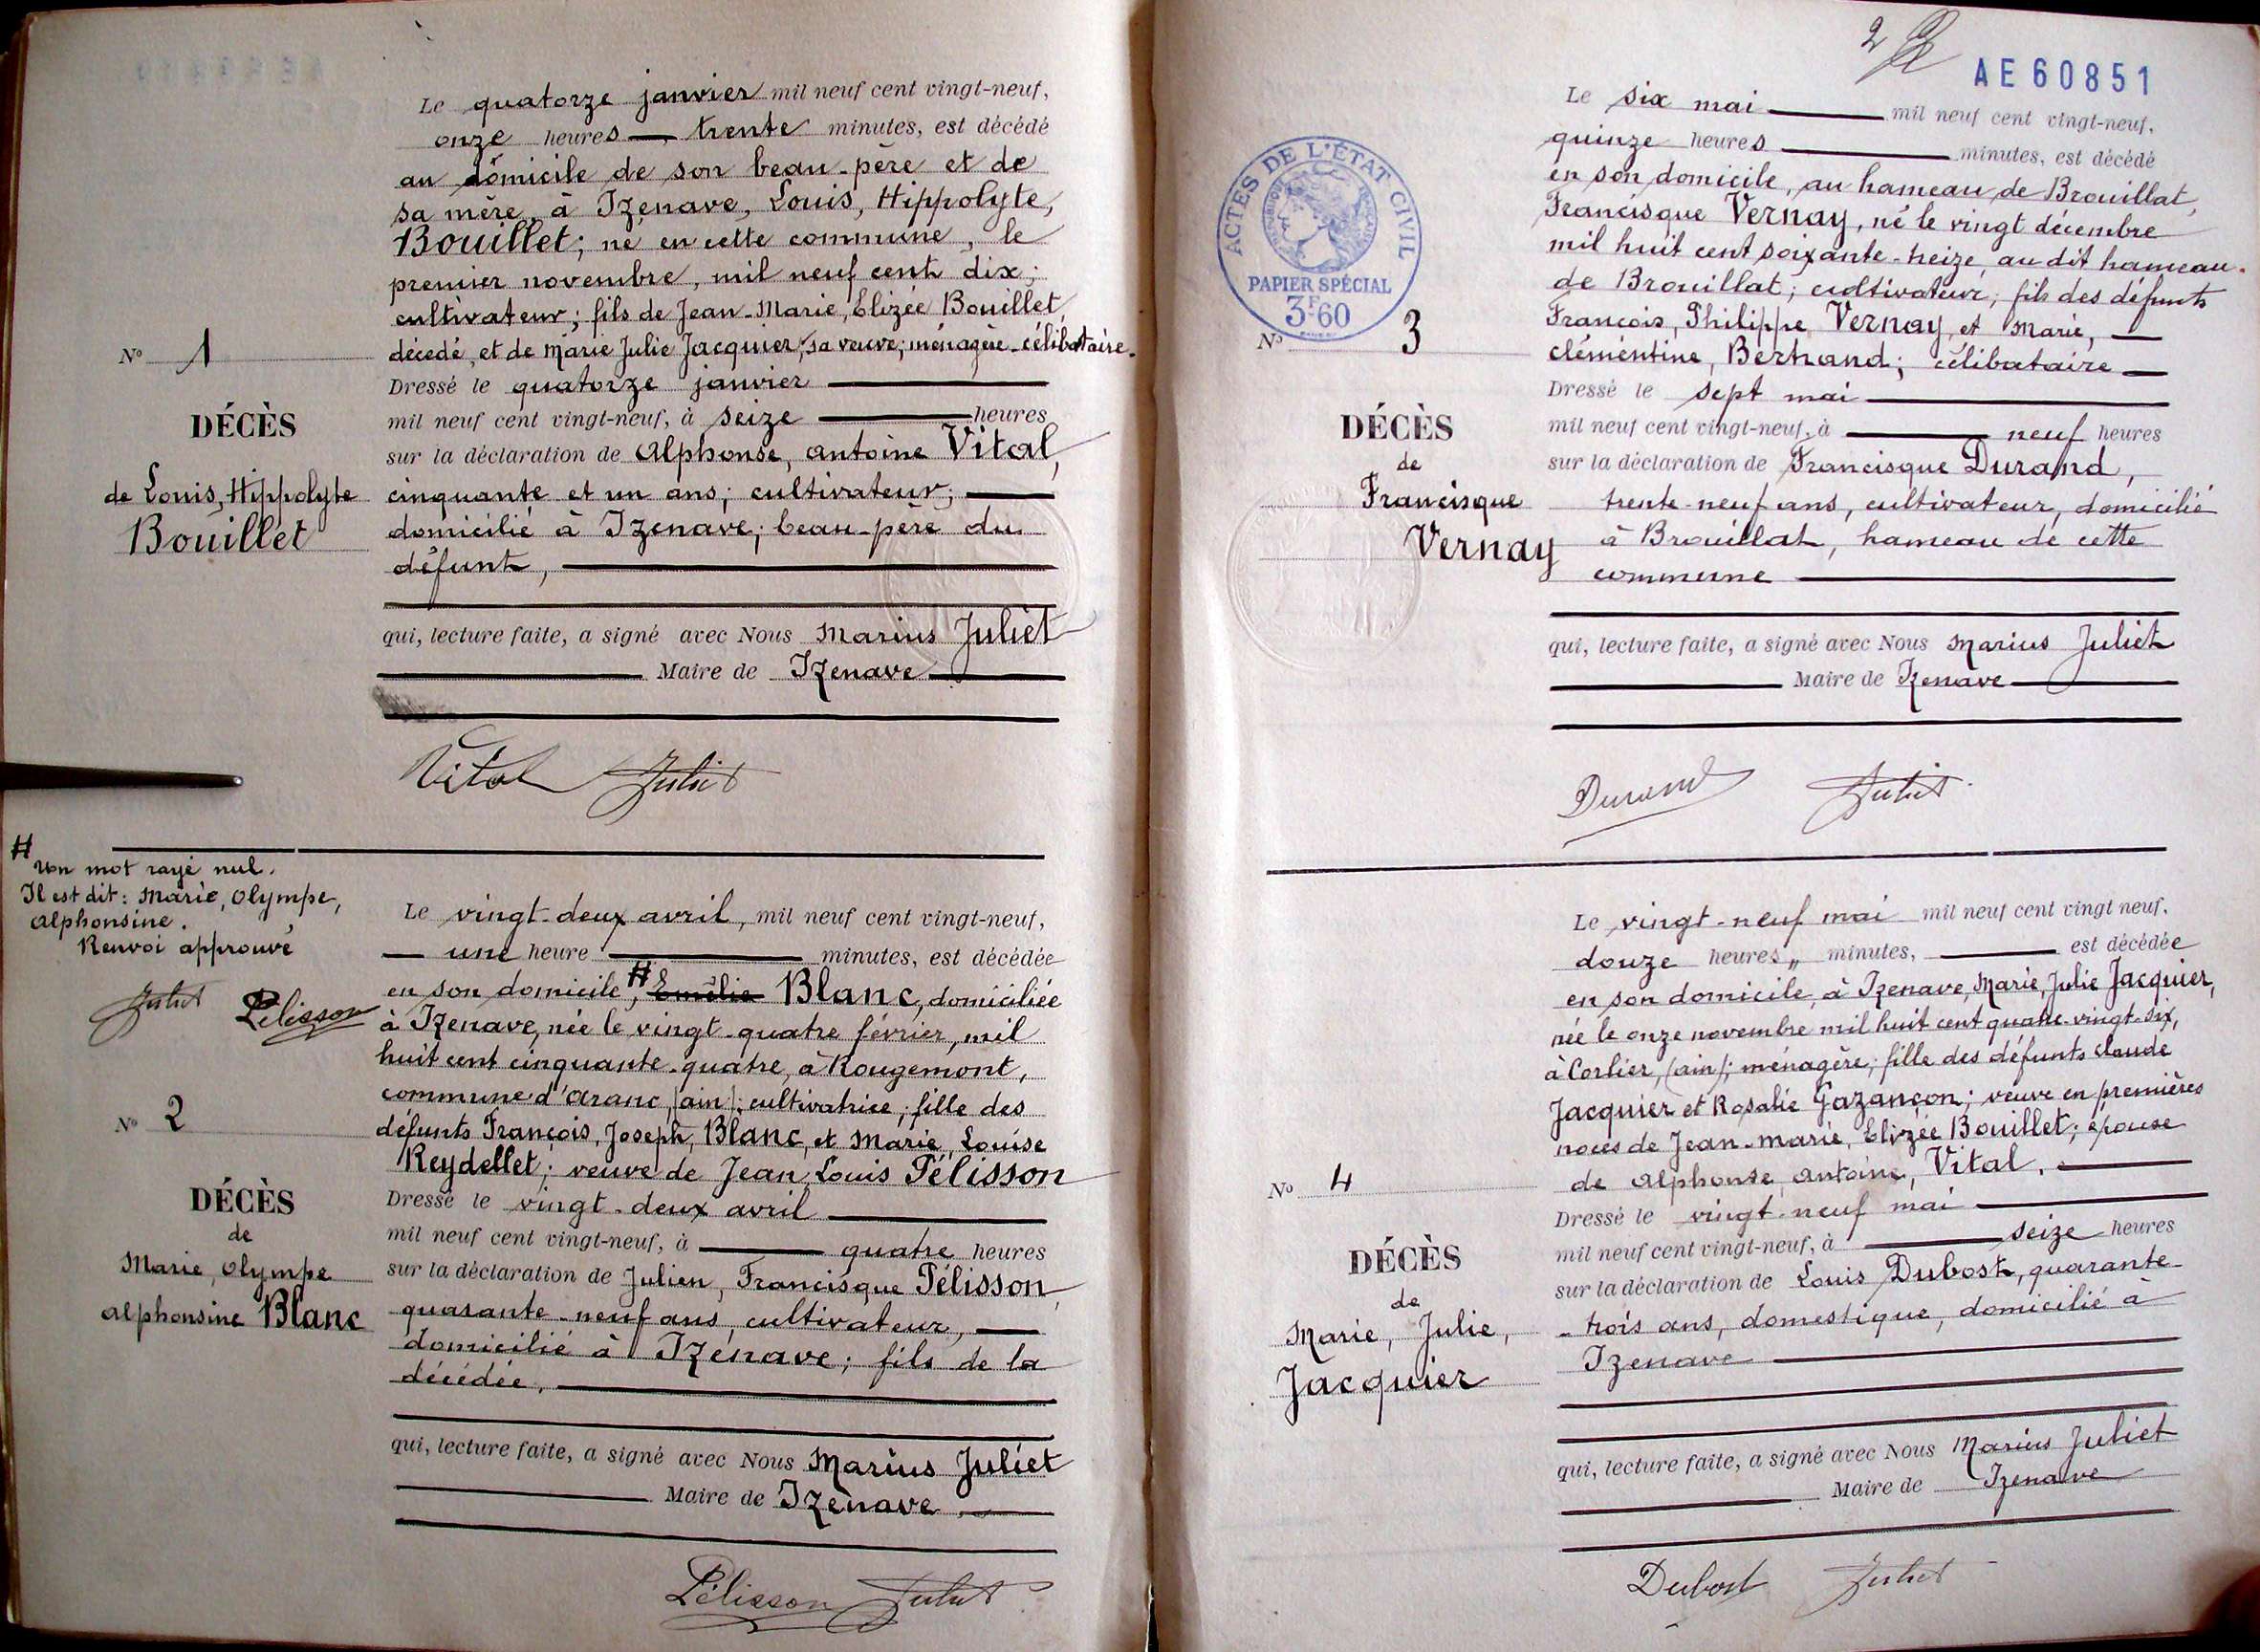 Le quatorze janvier mil neuf cent vingt-neuf,
onze heures trente minutes, est décédé
au domicile de son beau-père et de
sa mère, à Izenave, Louis, Hippolyte,
Bouillet; né en cette commune, le
premier novembre, mil neuf cent dix;
cultivateur; fils de Jean-Marie, Elizée Bouillet,
décédé, et de Marie Julie Jacquier, sa veuve; ménagère - célibataire.
Nº 1
Dressé le quatorze janvier
mil neuf cent vingt-neuf, à seize heures
DÉCÈS
sur la déclaration de Alphonse, antoine Vital,
de Louis, Hippolyte
cinquante et un ans; cultivateur;
Bouillet
domicilié à Izenave; beau-père du
défunt,
qui, lecture faite, a signé avec Nous Marius Juliet
Maire de Izenave
Vital Juliet
# Un mot rayé nul.
Il est dit: Marie, Olympe,
alphonsine.
Renvoi approuvé
Juliet Pélisson
Le vingt-deux avril, mil neuf cent vingt-neuf,
une heure minutes, est décédée
en son domicile, # Emélie Blanc, domiciliée
à Izenave, née le vingt-quatre février, mil
huit cent cinquante-quatre, à Rougemont,
commune d'Aranc, (ain); cultivatrice; fille des
défunts François, Joseph, Blanc, et Marie, Louise
Reydellet; veuve de Jean Louis Pélisson
Nº 2
Dressé le vingt-deux avril
DÉCÈS
de
mil neuf cent vingt-neuf, à quatre heures
Marie, Olympe
sur la déclaration de Julien, Francisque Pélisson,
alphonsine Blanc
quarante-neuf ans, cultivateur,
domicilié à Izenave; fils de la
décédée,
qui, lecture faite, a signé avec Nous Marius Juliet
Maire de Izenave
Pélisson Juliet
2
AE60851
ACTES DE L'ÉTAT CIVIL
PAPIER SPÉCIAL
3F60
Le six mai mil neuf cent vingt-neuf,
quinze heures minutes, est décédé
en son domicile, au hameau de Brouillat,
Francisque Vernay, né le vingt décembre
mil huit cent soixante-treize, au dit hameau
de Brouillat; cultivateur; fils des défunts
François, Philippe Vernay, et Marie,
clémentine, Bertrand; célibataire
Nº 3
Dressé le sept mai
DÉCÈS
mil neuf cent vingt-neuf, à neuf heures
de
sur la déclaration de Francisque Durand,
Francisque
trente-neuf ans, cultivateur, domicilié
Vernay
à Brouillat, hameau de cette
commune
qui, lecture faite, a signé avec Nous Marius Juliet
Maire de Izenave
Durand Juliet
Le vingt-neuf mai mil neuf cent vingt neuf,
douze heures „ minutes, est décédée
en son domicile, à Izenave, Marie, Julie Jacquier,
née le onze novembre mil huit cent quatre-vingt-six,
à Corlier, (ain); ménagère; fille des défunts claude
Jacquier et Rosalie Gazançon; veuve en premières
noces de Jean-marie, Elizée Bouillet; épouse
de alphonse, antoine, Vital,
Nº 4
Dressé le vingt-neuf mai
DÉCÈS
mil neuf cent vingt-neuf, à seize heures
de
sur la déclaration de Louis Dubost, quarante-
Marie, Julie,
trois ans, domestique, domicilié à
Jacquier
Izenave
qui, lecture faite, a signé avec Nous Marius Juliet
Maire de Izenave
Dubost Juliet